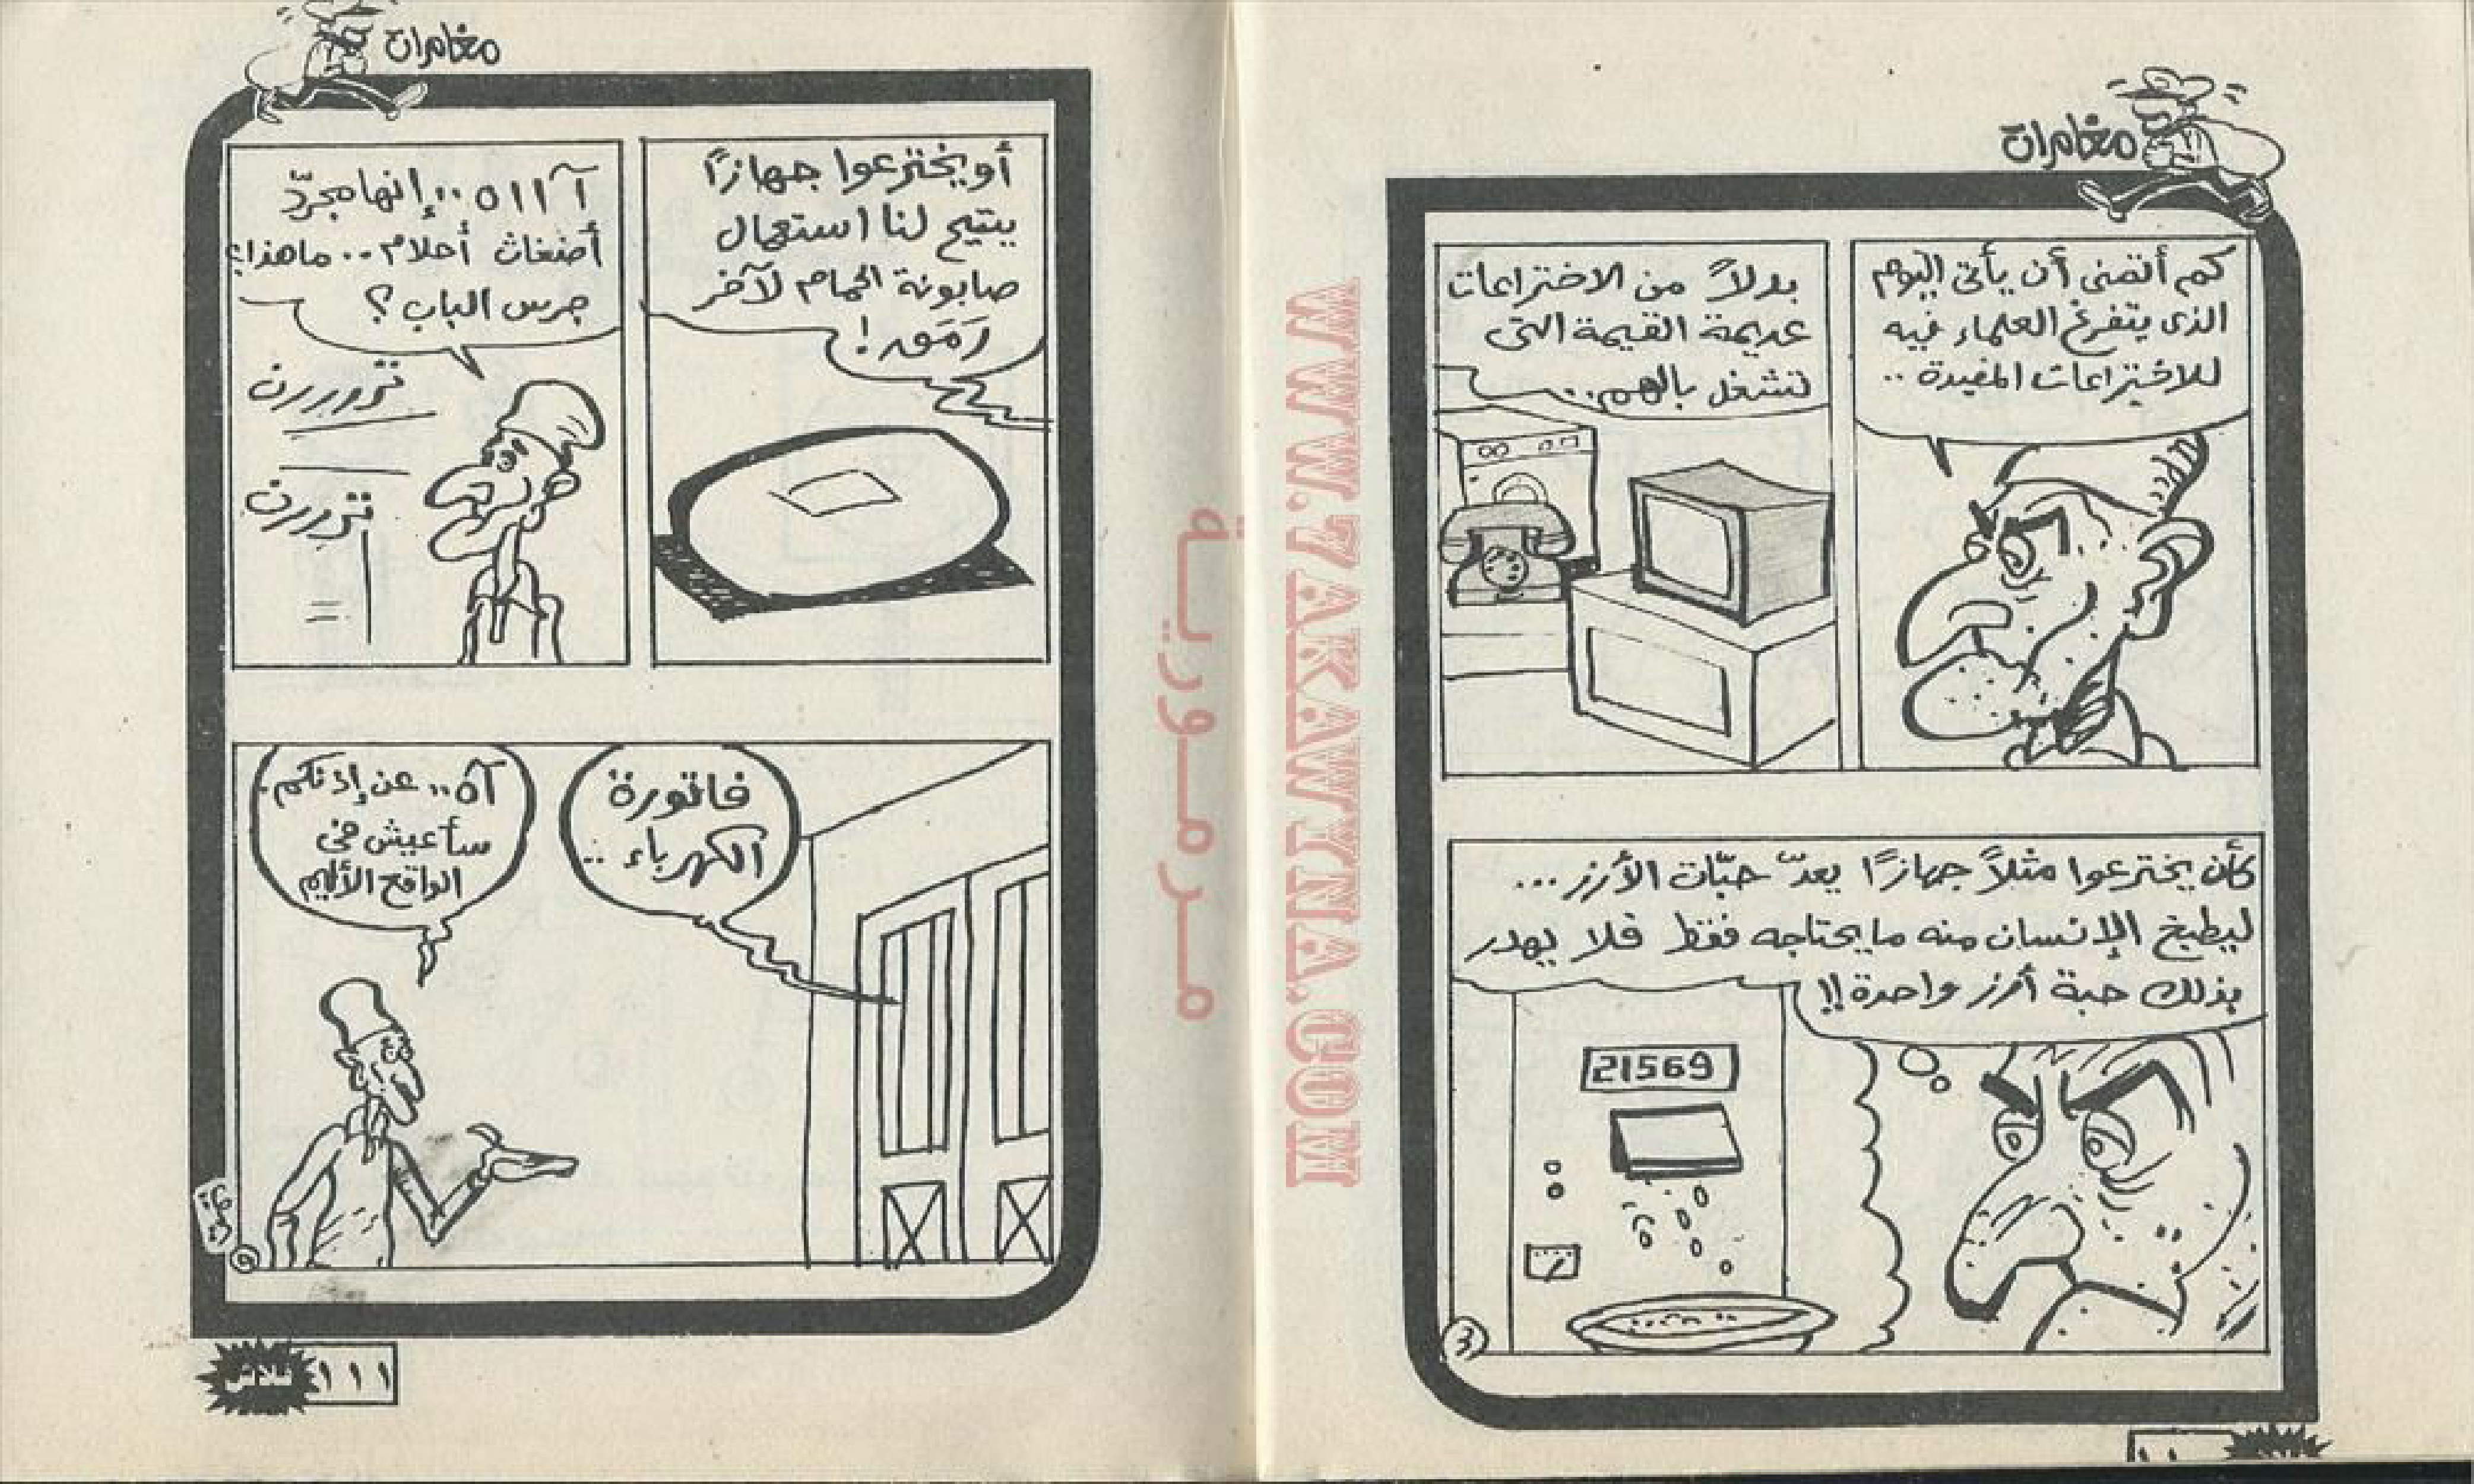 مغامرات
كم أتمنى أن يأتى اليوم
الذى يتفرغ العلماء فيه
للاختراعات المفيدة ..
بدلاً من الاختراعات
عديمة القيمة التى
تشغل بالهم ..
كأن يخترعوا مثلاً جهازًا يعدّ حبّات الأرز ...
ليطبخ الإنسان منه ما يحتاجه فقط فلا يهدر
بذلك حبة أرز واحدة !!
21569
٤
مغامرات
أو يخترعوا جهازًا
يتيح لنا استعمال
صابونة الحمام لآخر
رَمَق !
آ ا ا ا ه .. إنها مجرّد
أضغاث أحلام .. ما هذا ؟
جرس الباب ؟
تررررن
تررررن
فاتورة
الكهرباء ..
آه .. عن إذنكم .
سأعيش فى
الواقع الأليم
٥
١١١
فلاش
مرمورية
WWW.7AKAWINA.COM